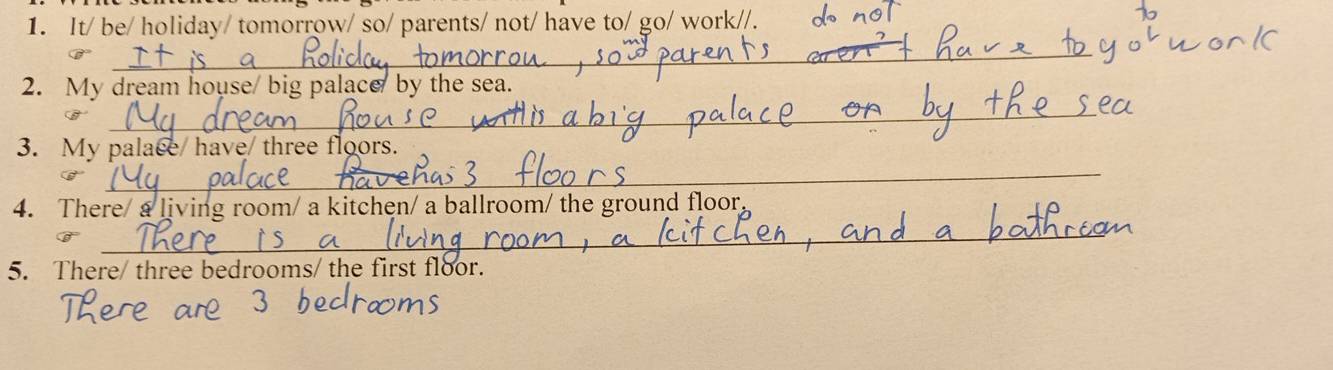 1. It/ be/ holiday/ tomorrow/ so/ parents/ not/ have to/ go/ work//.
do not to
It is a holiday tomorrow, so my parents aren't have to go to work
2. My dream house/ big palace/ by the sea.
My dream house is a big palace on by the sea
3. My palace/ have/ three floors.
My palace have has 3 floors
4. There/ a living room/ a kitchen/ a ballroom/ the ground floor.
There is a living room, a kitchen, and a bathroom
5. There/ three bedrooms/ the first floor.
There are 3 bedrooms